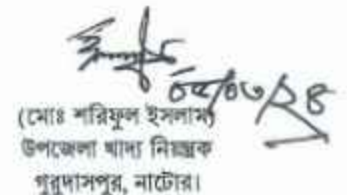 ০৫/০৩/২৪
(মোঃ শরিফুল ইসলাম)
উপজেলা খাদ্য নিয়ন্ত্রক
গুরুদাসপুর, নাটোর।